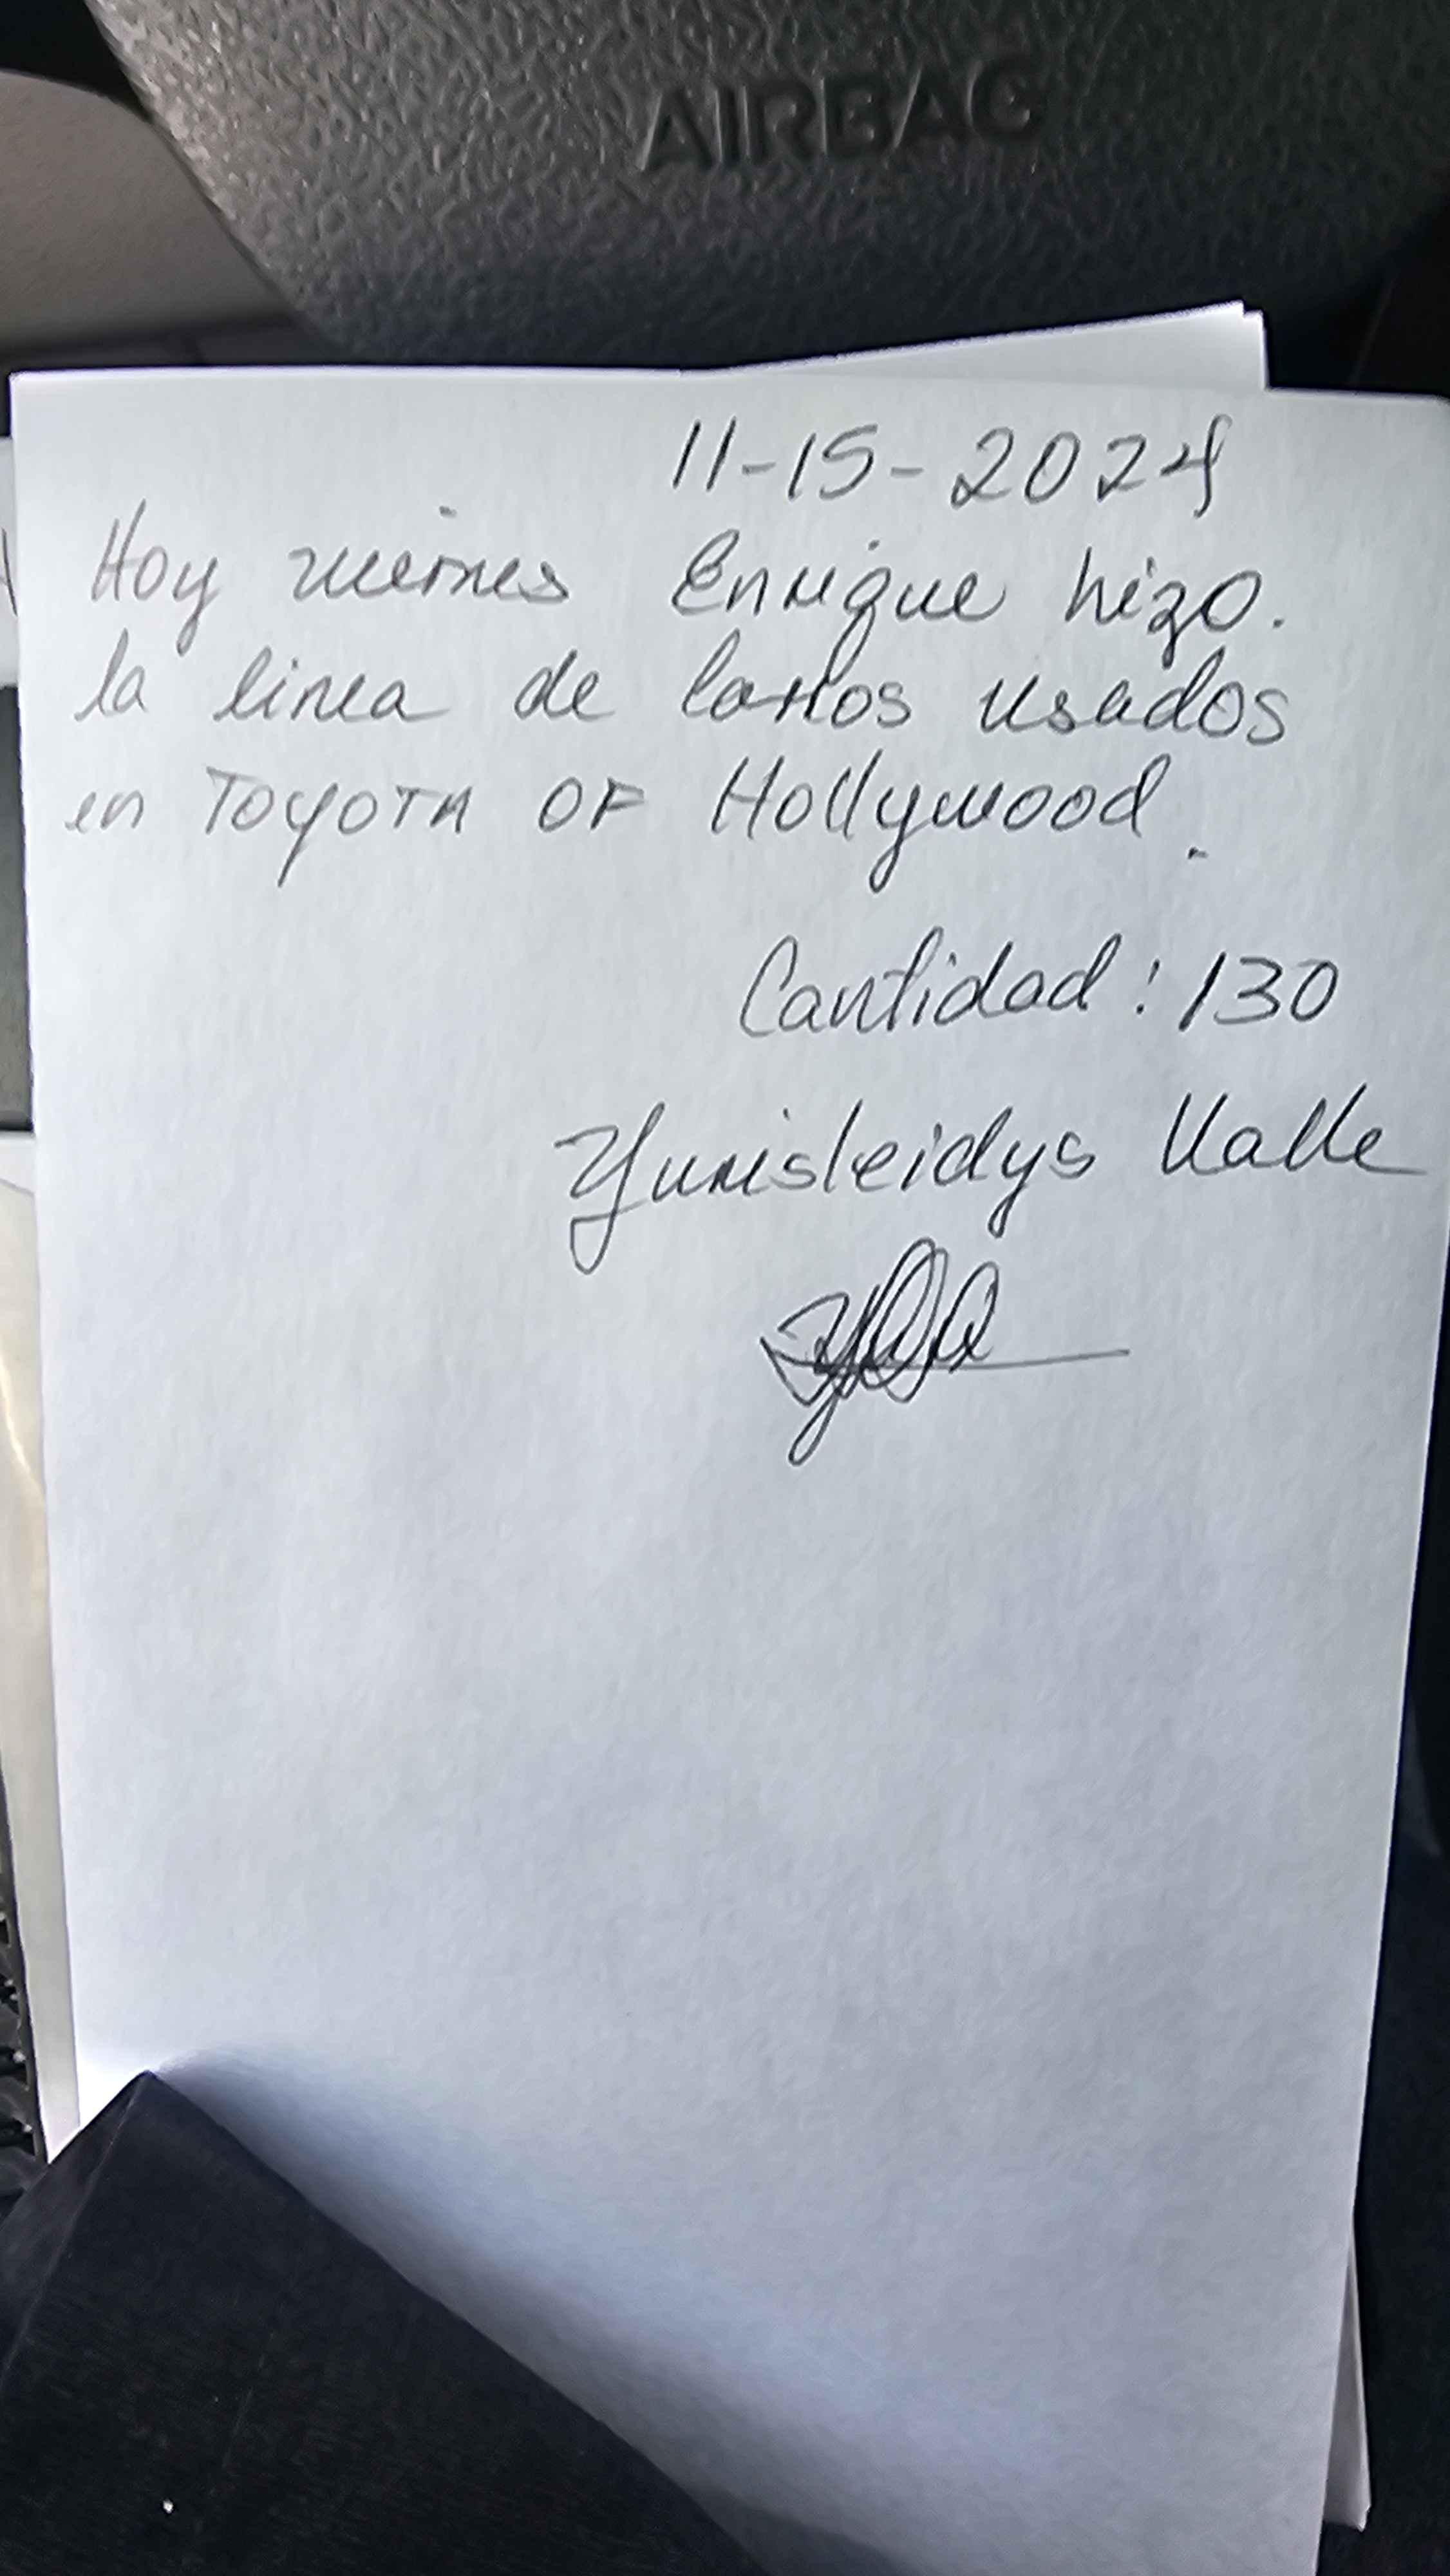 AIRBAG
11-15-2024
Hoy viernes Enrique hizo.
la linea de Carros usados
en Toyota OF Hollywood.
Cantidad: 130
Yunisleidys Valle